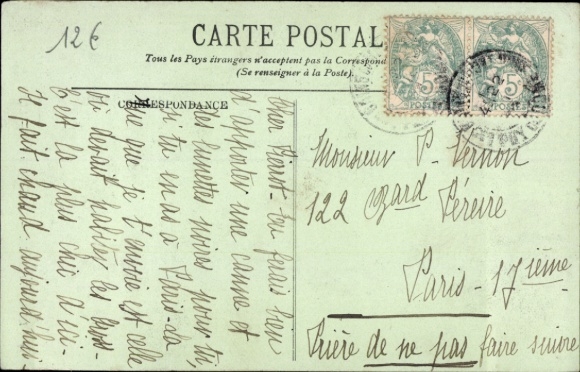 12€
CARTE POSTAL
Tous les Pays étrangers n'acceptent pas la Correspond
(Se renseigner à la Poste).
CORRESPONDANCE
Cher Pierrot - tu ferais bien
d'apporter une canne et
des lunettes noires pour toi,
si tu en as à Paris - La
vue que je t'envoie est celle
où devait habiter les
C'est la plus chic d'ici -
Il fait chaud aujourd'hui -
5 5
POSTES POSTES
Monsieur P. Vernon
122 Bard Péreire
Paris - 17ième
Prière de ne pas faire suivre